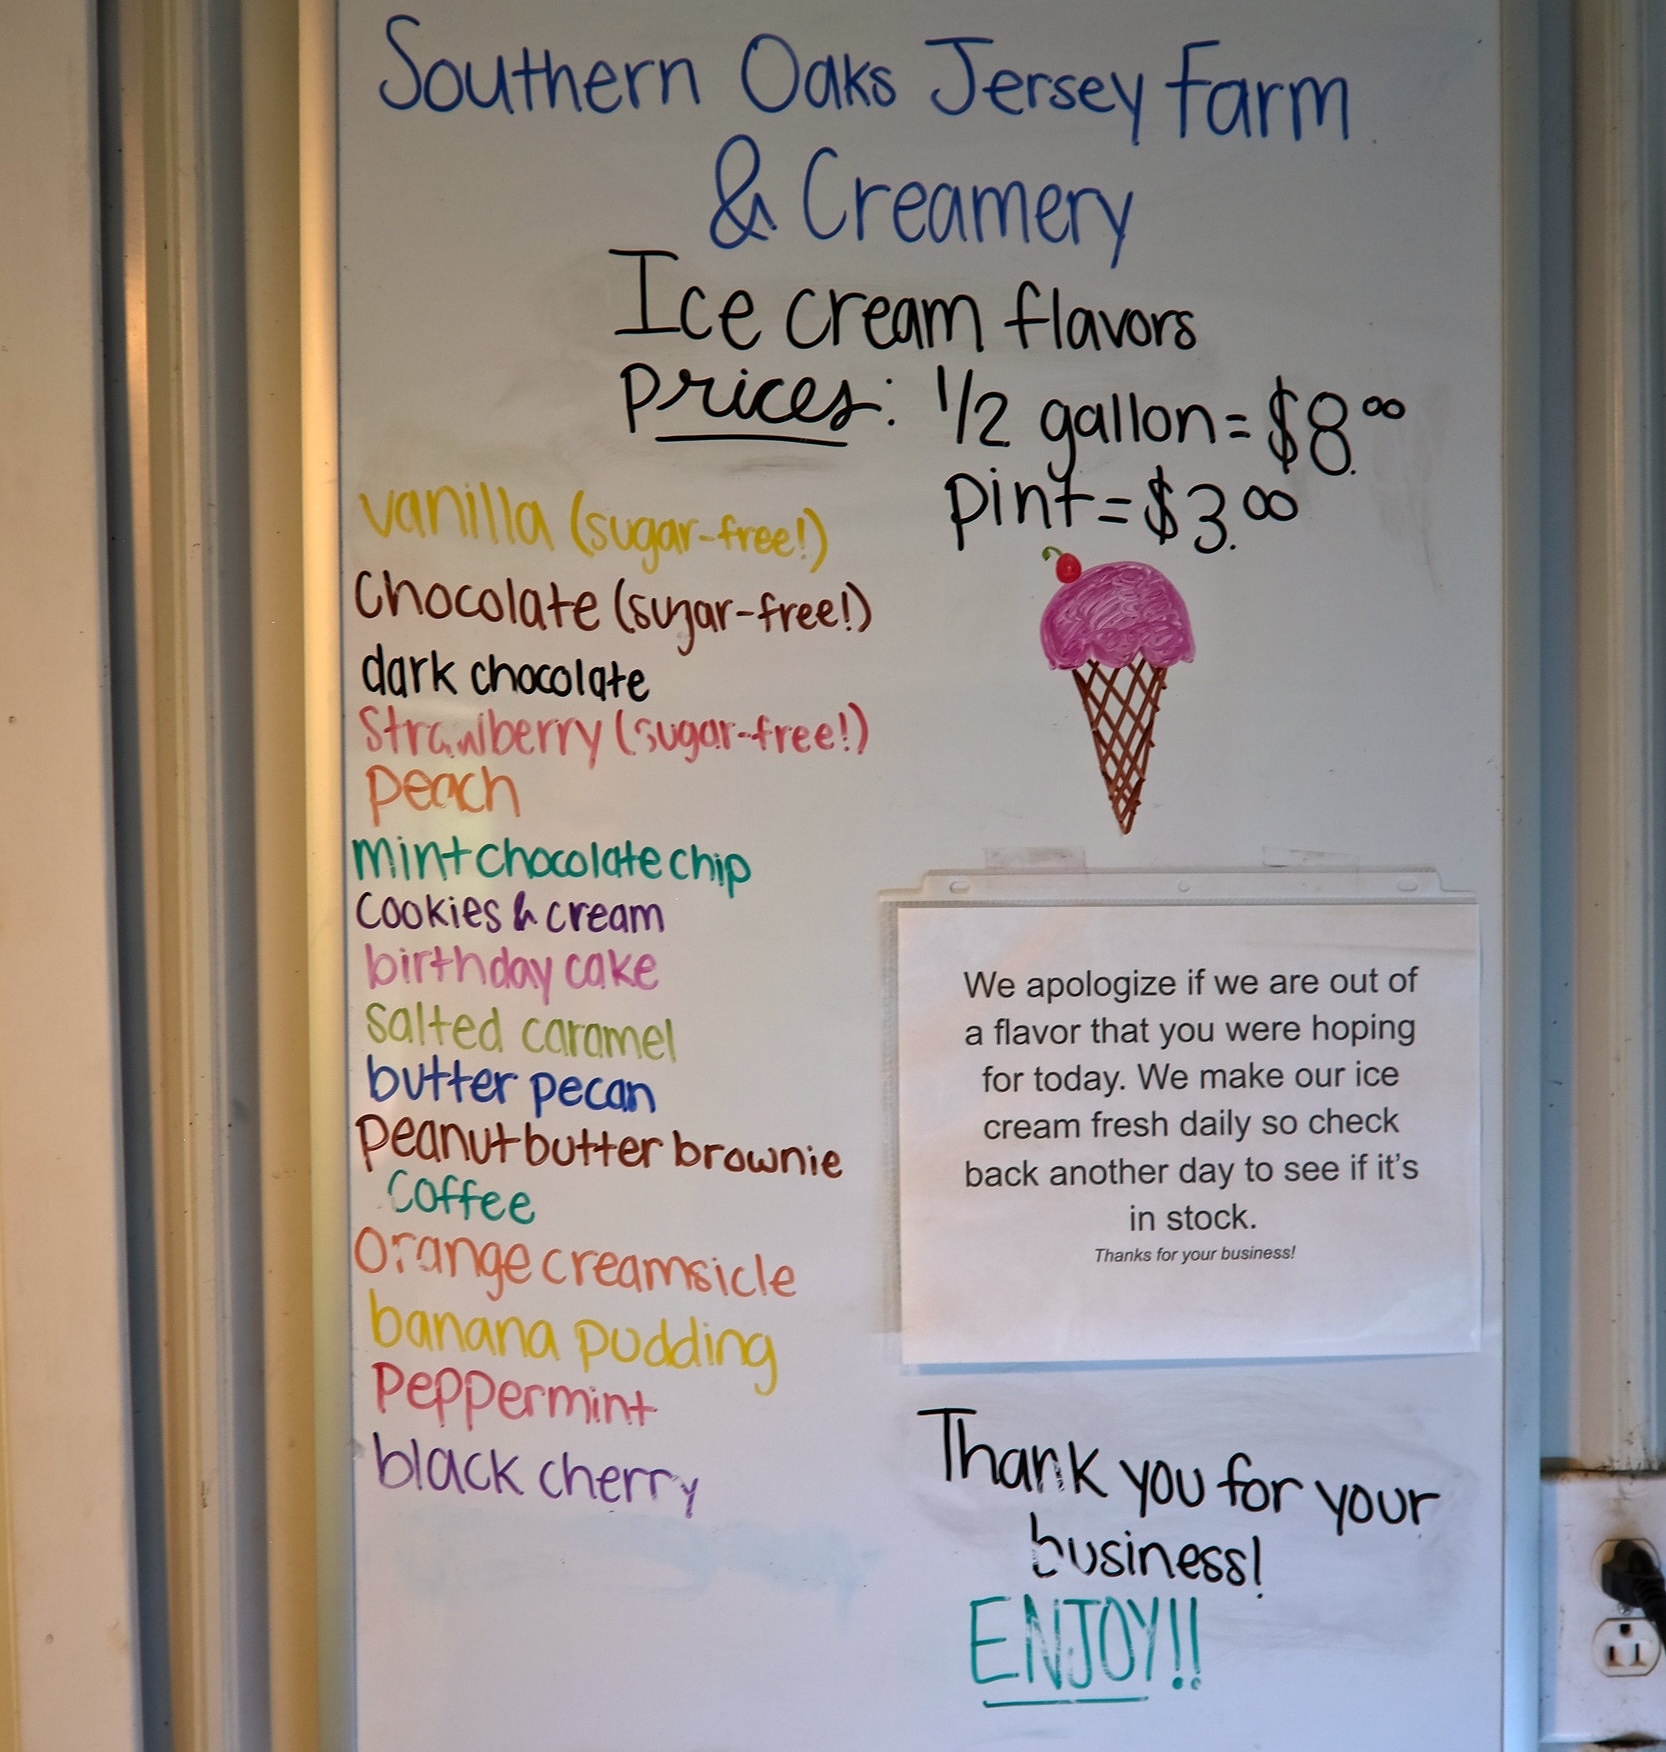 Southern Oaks Jersey Farm
& Creamery
Ice cream flavors
Prices: 1/2 gallon = $8.00
pint = $3.00
vanilla (sugar-free!)
Chocolate (sugar-free!)
dark chocolate
Strawberry (sugar-free!)
peach
mint chocolate chip
Cookies & cream
birthday cake
salted caramel
butter pecan
peanut butter brownie
Coffee
Orange creamsicle
banana pudding
Peppermint
black cherry
We apologize if we are out of
a flavor that you were hoping
for today. We make our ice
cream fresh daily so check
back another day to see if it's
in stock.
Thanks for your business!
Thank you for your
business!
ENJOY!!